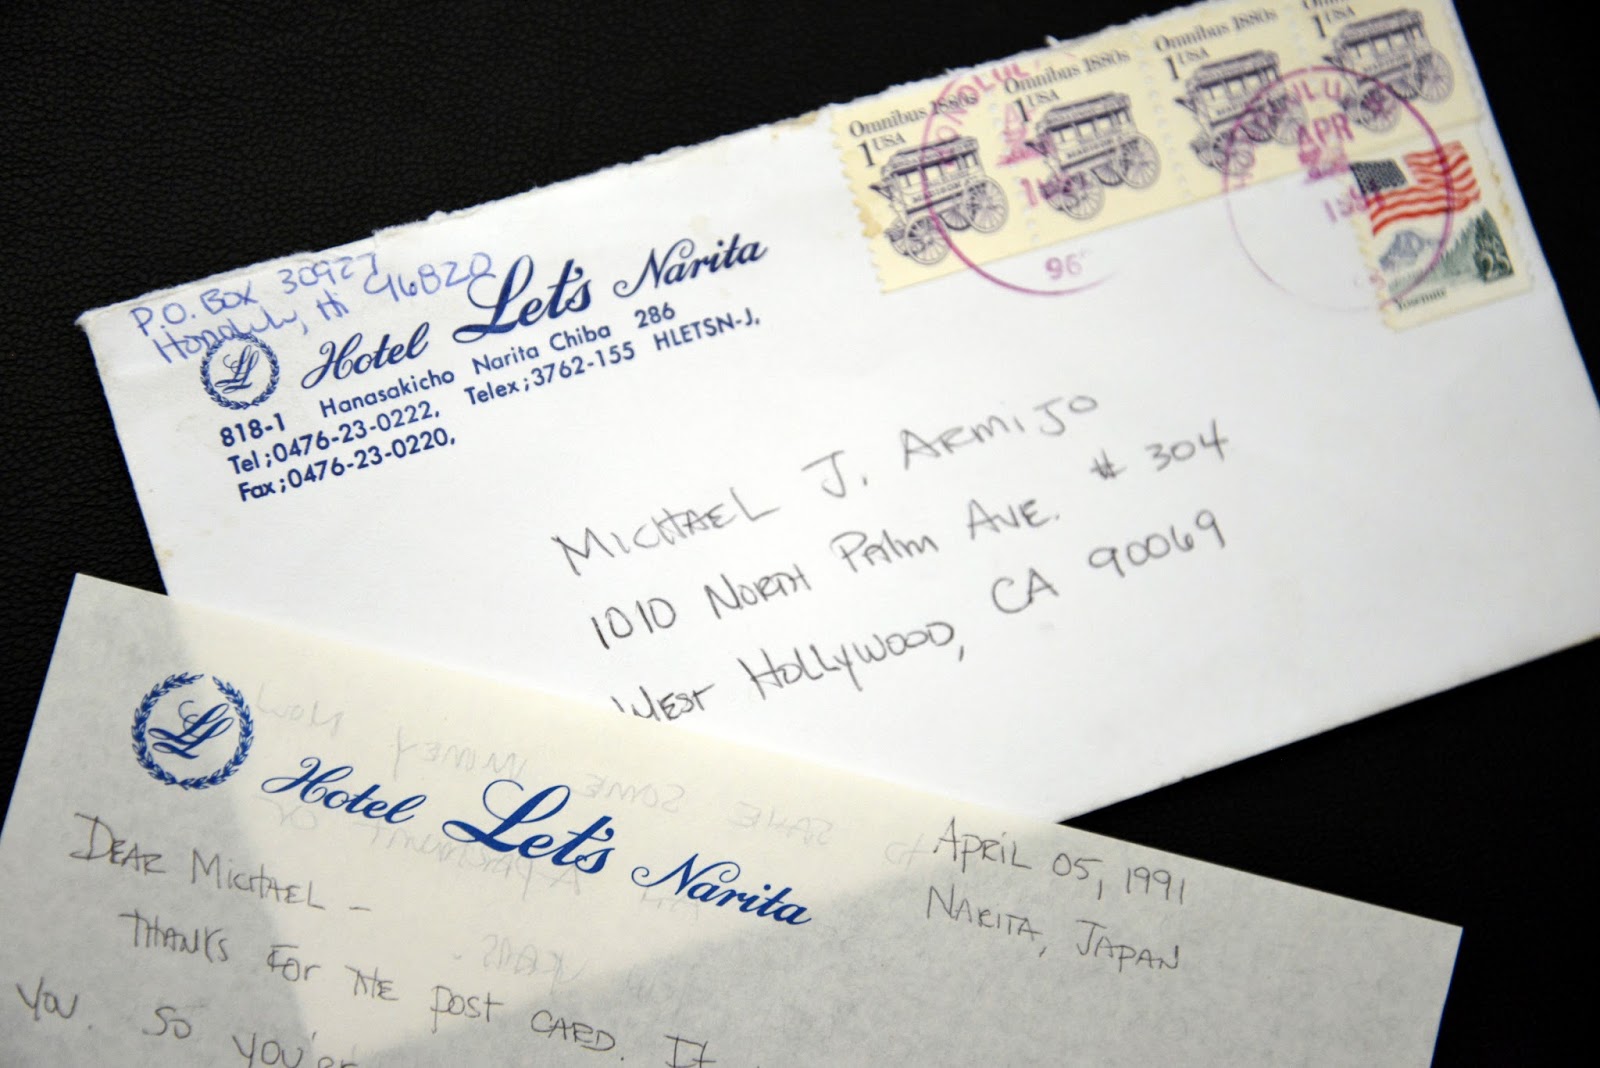 P.O. BOX 30927
Honolulu, HI 96820
Hotel Let's Narita
818-1 Hanasakicho Narita Chiba 286
Tel;0476-23-0222, Telex;3762-155 HLETSN-J,
Fax;0476-23-0220,
Omnibus 1880s
1 USA
Omnibus 1880s
1 USA
Omnibus 1880s
1 USA
1
USA
HONOLULU
APR
96
25
Yosemite
MICHAEL J. ARMIJO
1010 NORTH PALM AVE. # 304
WEST HOLLYWOOD, CA 90069
Hotel Let's Narita
APRIL 05, 1991
NARITA, JAPAN
DEAR MICHAEL –
THANKS FOR THE POST CARD. It
YOU. SO YOU'